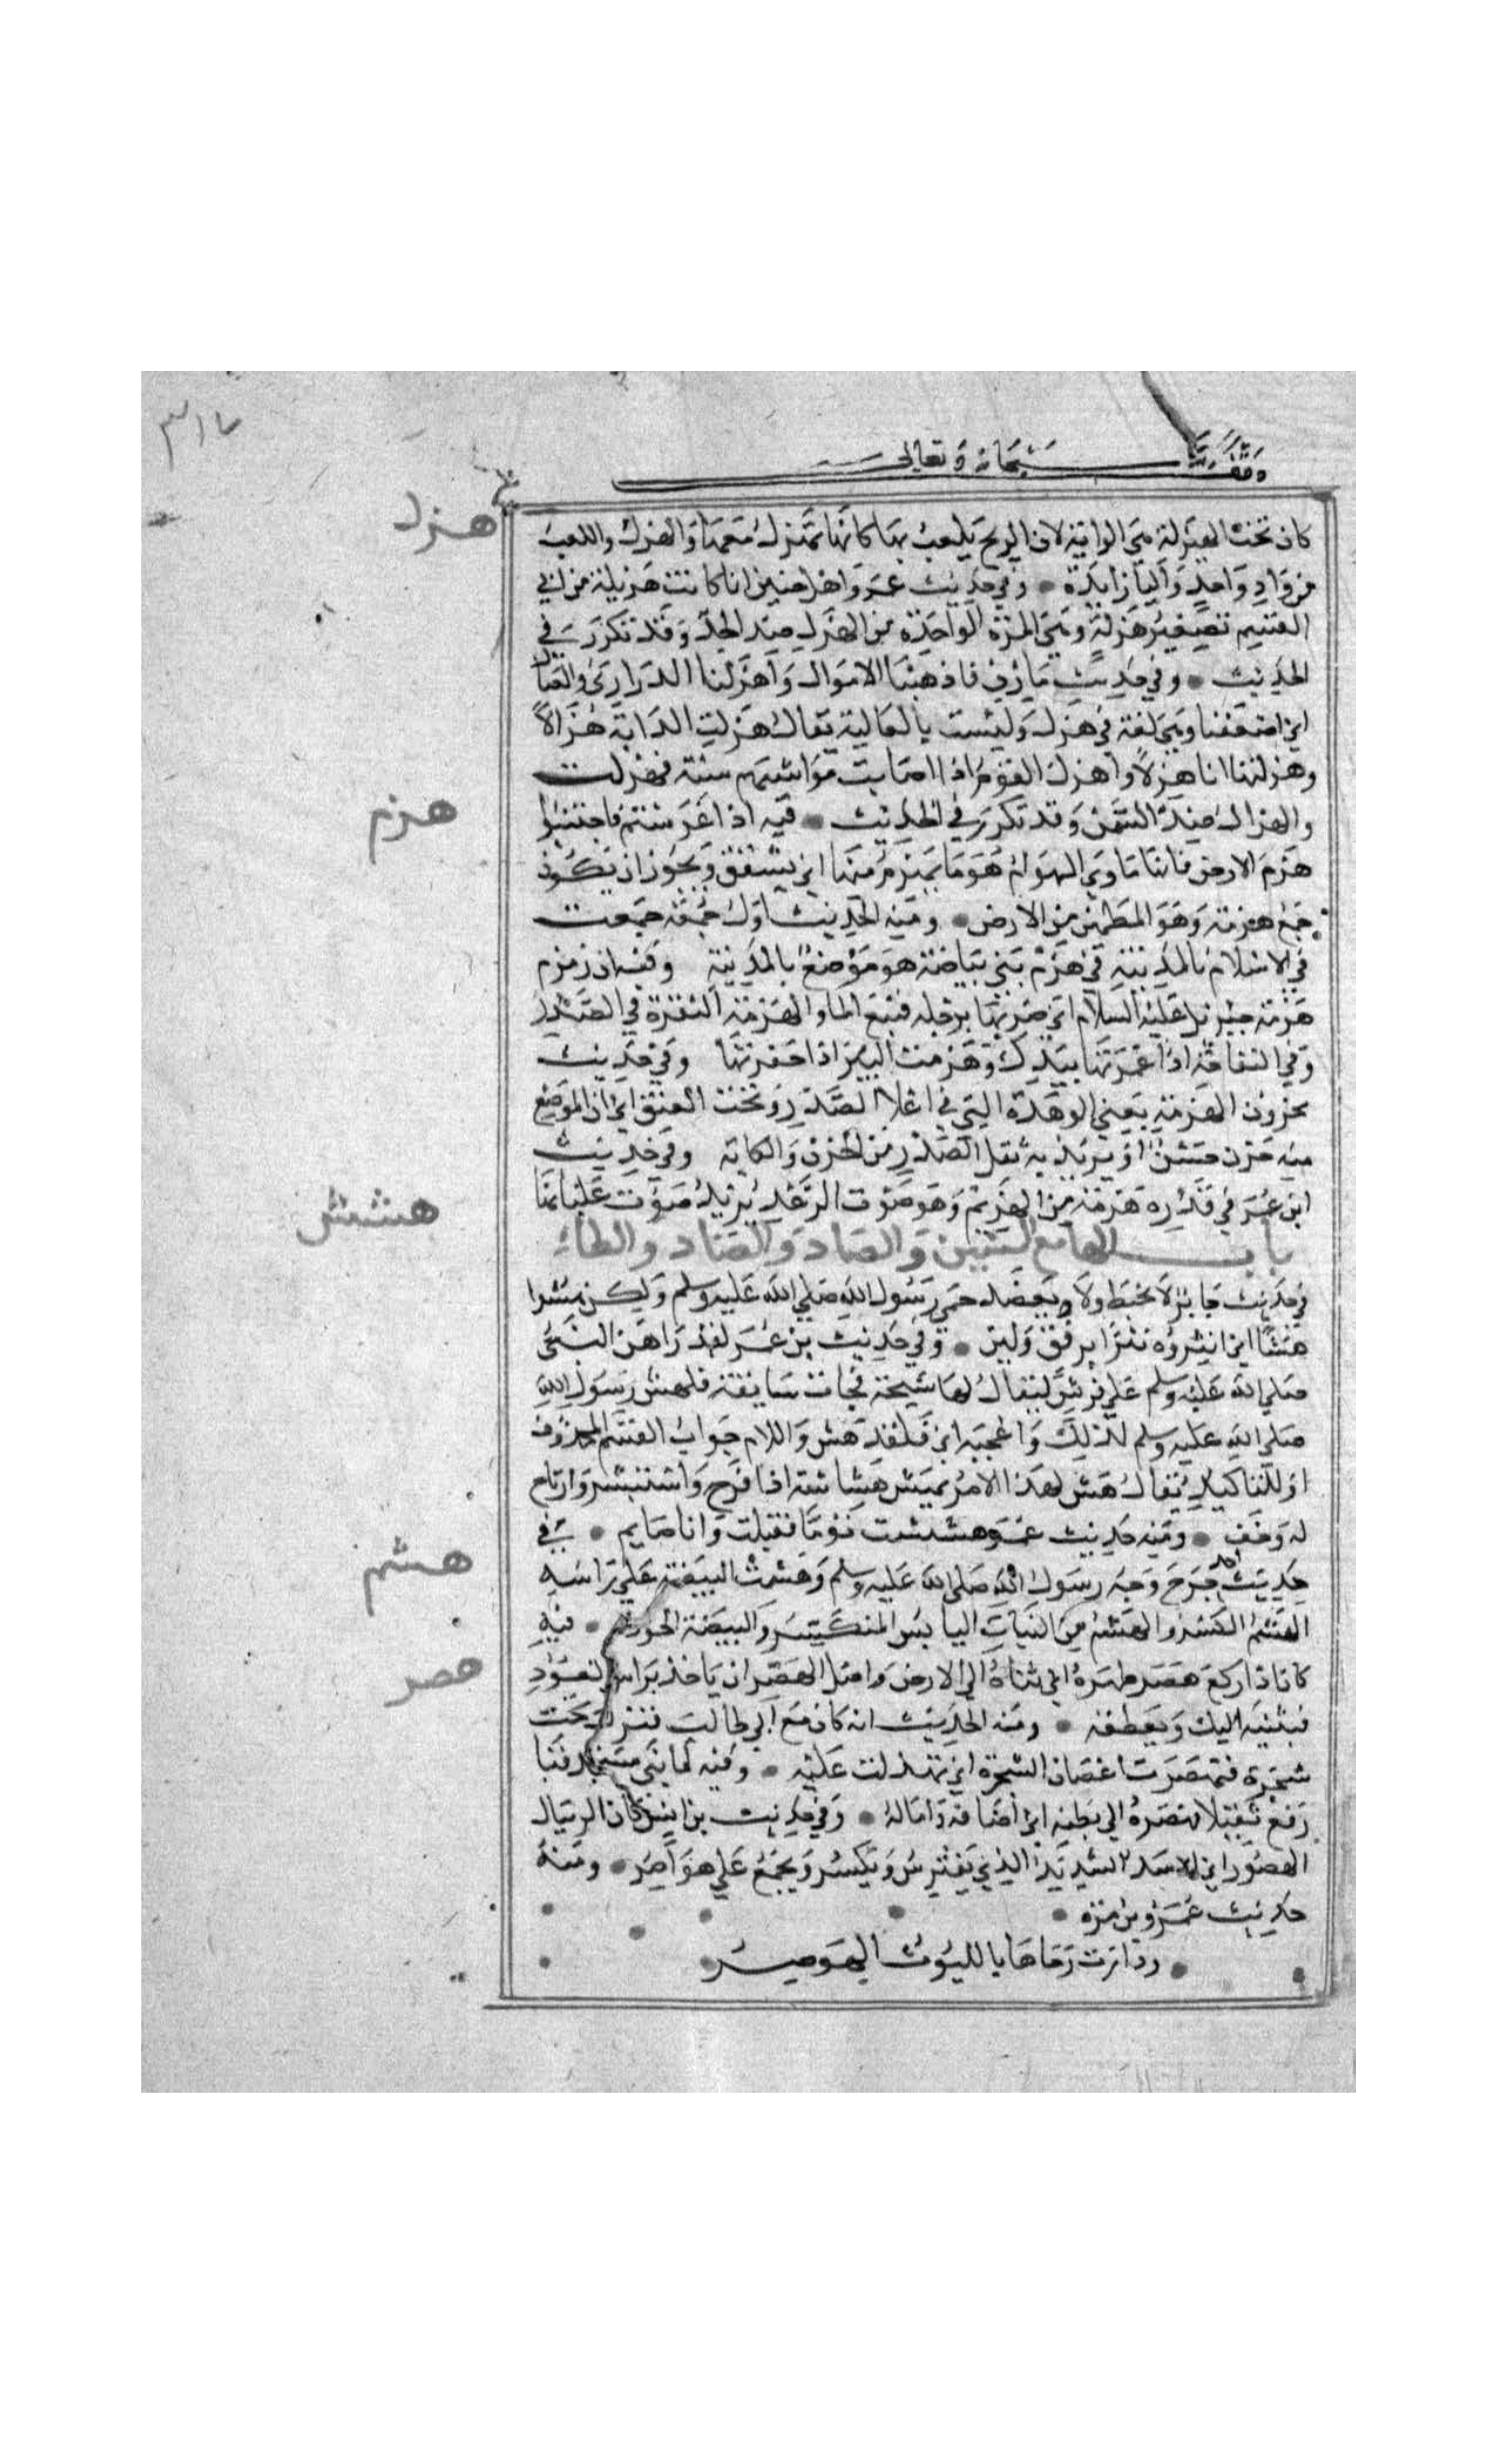 وقف لله سبحانه وتعالى
٣١٧
هزل
كان تحت الهيزلة هي الراية لان الريح يلعب بها كانها تهزل معها والهزل واللعب
من واد واحد واليا زايدة • وفي حديث عمر واهل خيبر انا كانت هزيلة من ابي
القسم تصغير هزلة وهي المرة الواحدة من الهزل ضد الجد وقد تكرر في
الحديث • وفي حديث مازن فاذهبنا الاموال واهزلنا الدراري والعيال
اي اضعفنا وهي لغة في هزل وليست بالعالية يقال هزلت الدابة هزالاً
وهزلتها انا هزلاً واهزل القوم اذا اصابت مواشيهم سنة فهزلت
هزم
والهزال ضد السمن وقد تكرر في الحديث • فيه اذا عرستم فاجتنبوا
هزم الارض فانها ماوي الهوام هو ما تهزم منها اي تشقق ويجوز ان يكون
جمع هزمة وهو المطمئن من الارض • ومنه الحديث اول جمعة جمعت
في الاسلام بالمدينة في هزم بني بياضة هو موضع بالمدينة وفيه ان زمزم
هزمة جبريل عليه السلام اي ضربها برجله فنبع الما والهزمة النقرة في الصدر
وفي التفاحة اذا غمزتها بيدك وهزمت البير اذا حفرتها وفي حديث
محزون الهزمة يعني الوهدة التي في اعلا الصدر وتحت العنق اي ان الموضع
منه حزن خشن او يريد به ثقل الصدر من الحزن والكابة وفي حديث
هشش
ابن عمر في قدره هزمة من الهزيم وهو صوت الرعد يريد صوت غليانها
باب الها مع الشين والصاد والضاد والطاء
في حديث جابر لا يخبط ولا يعضد حمى رسول الله صلي الله عليه وسلم ولكن هشوا
هشا اي انثروه نثرا برفق ولين • وفي حديث بن عمر لقد راهن النبي
صلي الله عليه وسلم علي فرس يقال لها سبحة فجات سابقة فلهش رسول الله
صلي الله عليه وسلم لذلك واعجبه اي فلقد هش واللام جواب القسم المحذوف
او للتاكيد يقال هش لهذا الامر يهش هشاشة اذا فرح واستبشر وارتاح
له وخف • ومنه حديث عمر هششت يوما فقبلت وانا صايم • في
هشم
حديث احد جرح وجه رسول الله صلي الله عليه وسلم وهشمت البيضة علي راسه
الهشم الكسر والهشيم من النبات اليابس المتكسر والبيضة الخوذة • فيه
هصر
كان اذا ركع هصر ظهره اي ثناه الي الارض واصل الهصر ان ياخذ براس العود
فيثنيه اليك ويعطفه • ومنه الحديث انه كان مع ابي طالب فنزل تحت
شجرة فتهصرت اغصان الشجرة اي تهدلت عليه • وفيه لما بني مسجد قبا
رفع ثقيلا فهصره الي بطنه اي اضافه واماله • وفي حديث بن انيس كان الريبال
الهصور اي الاسد الشديد الذي يفترس ويكسر ويجمع علي هواصر • ومنه
حديث عمرو بن مرة •
• ودارت رحاها بالليوث الهواصر